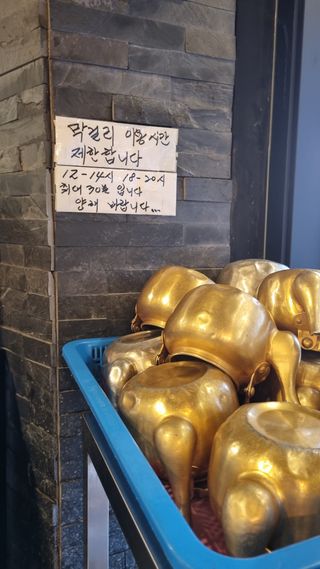 막걸리 이용시간
제한합니다
12-14시 18-20시
최대 30분 입니다
양해 바랍니다...